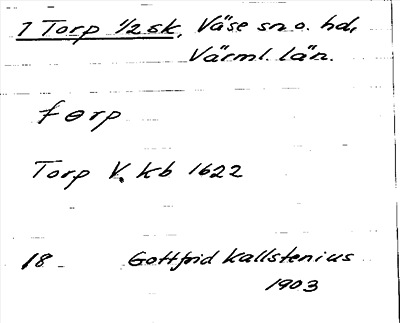 1 Torp 1/2 sk, Väse sn o. hd,
Värml. län.
fɵrp
Torp V. kb 1622
18
Gottfrid Kallstenius
1903